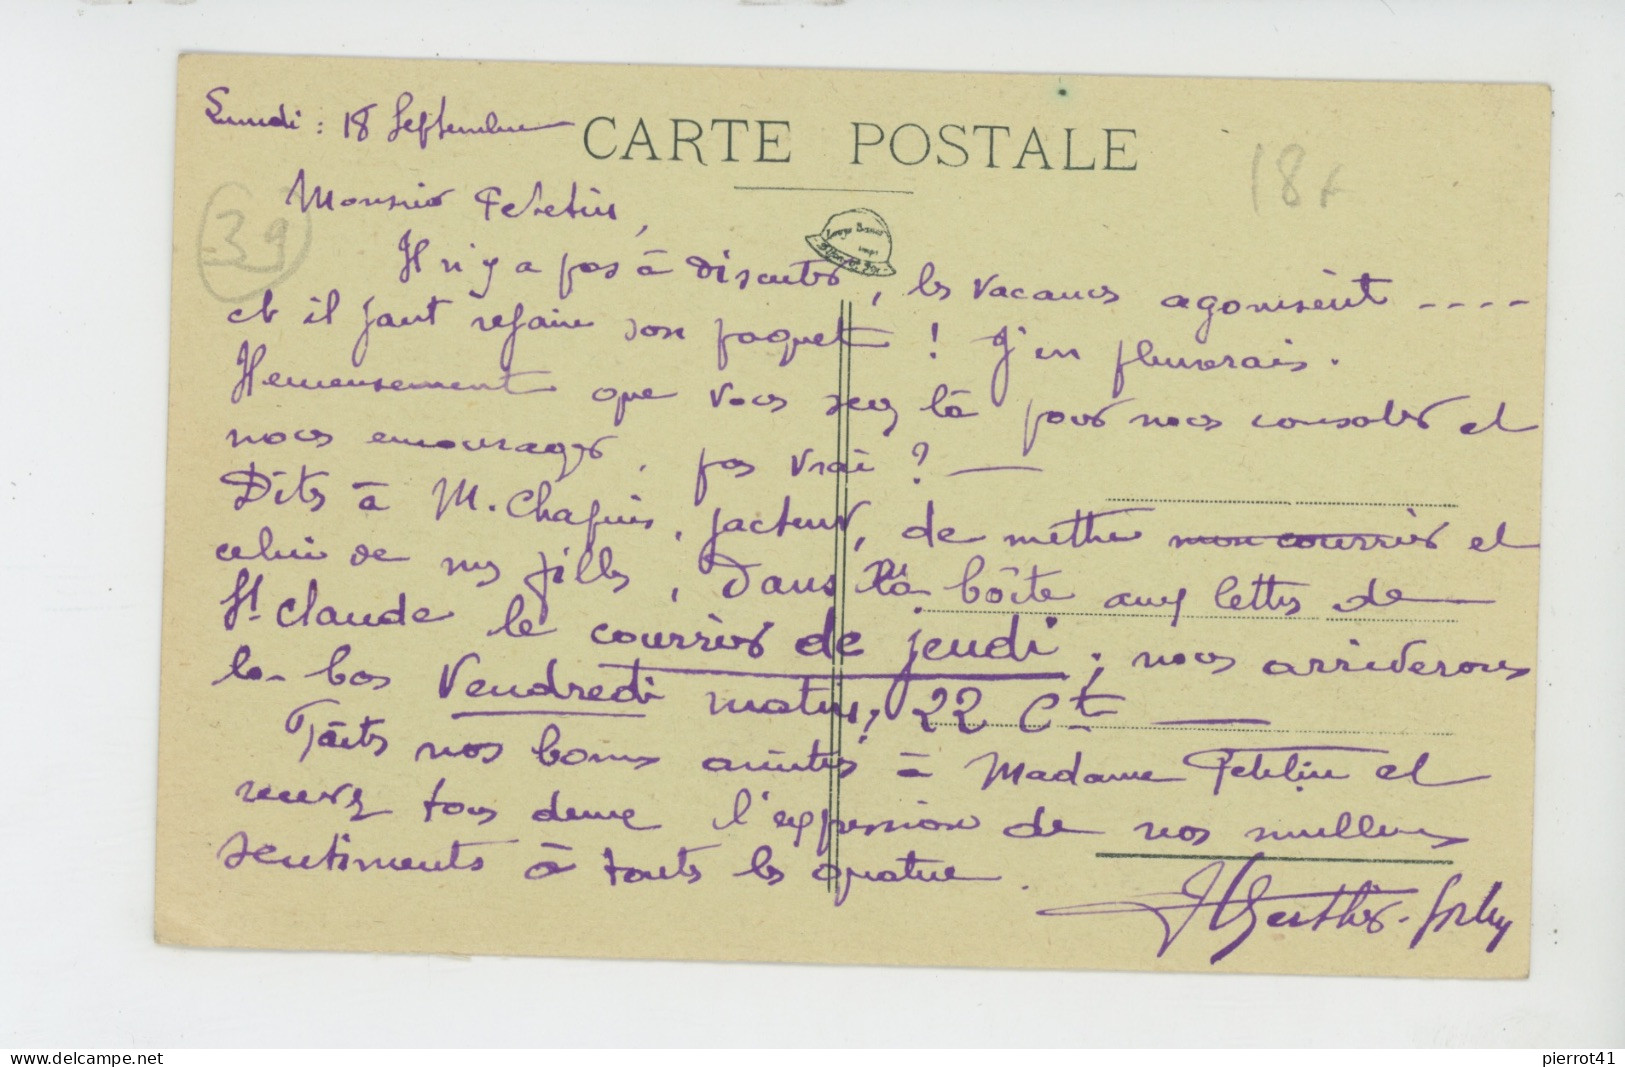 Lundi : 18 Septembre
CARTE POSTALE
18 x
39
Monsieur Petetin,
Il n'y a pas à discuter, les vacances agonisent ----
et il faut refaire son paquet ! J'en pleurerais.
Heureusement que vous serez là pour nous consoler et
nous encourager, pas vrai ? —
Dites à M. Chapuis, facteur, de mettre mon courrier et
celui de mes filles, dans la boîte aux lettres de
St. Claude le courrier de jeudi ; nous arriverons
là-bas Vendredi matin, 22 Ct —
Faites nos bonnes amitiés à Madame Petetin et
recevez tous deux l'expression de nos meilleurs
sentiments à toutes les quatre.
www.delcampe.net
pierrot41